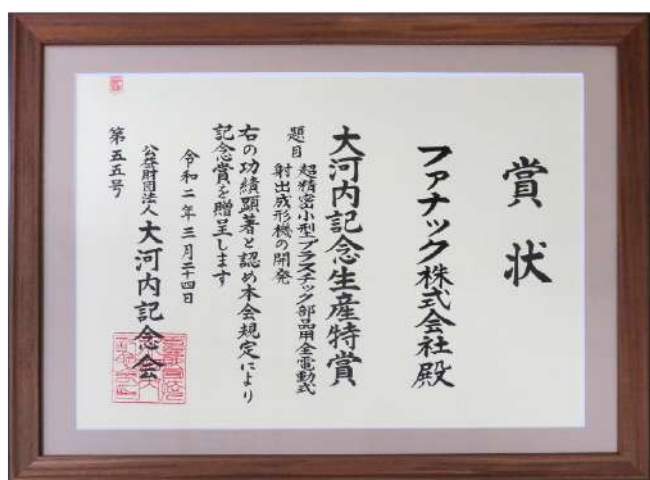 賞状
ファナック株式会社殿
大河内記念生産特賞
題目 超精密小型プラスチック部品用全電動式
射出成形機の開発
右の功績顕著と認め本会規定により
記念賞を贈呈します
令和二年三月二十四日
公益財団法人 大河内記念会
第五五号